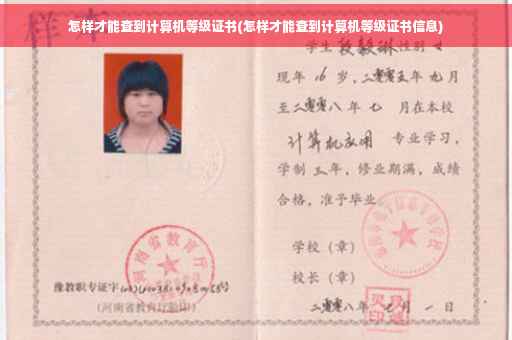 怎样才能查到计算机等级证书(怎样才能查到计算机等级证书信息)
样本
学生段毅琳性别女
现年16岁，二零零五年九月
至二零零八年七月在本校
计算机应用 专业学习，
学制三年，修业期满，成绩
合格，准予毕业
学校（章）
河南省教育厅
校长（章）
豫教职专证字
(河南省教育厅验印)
二零零八年七月一日